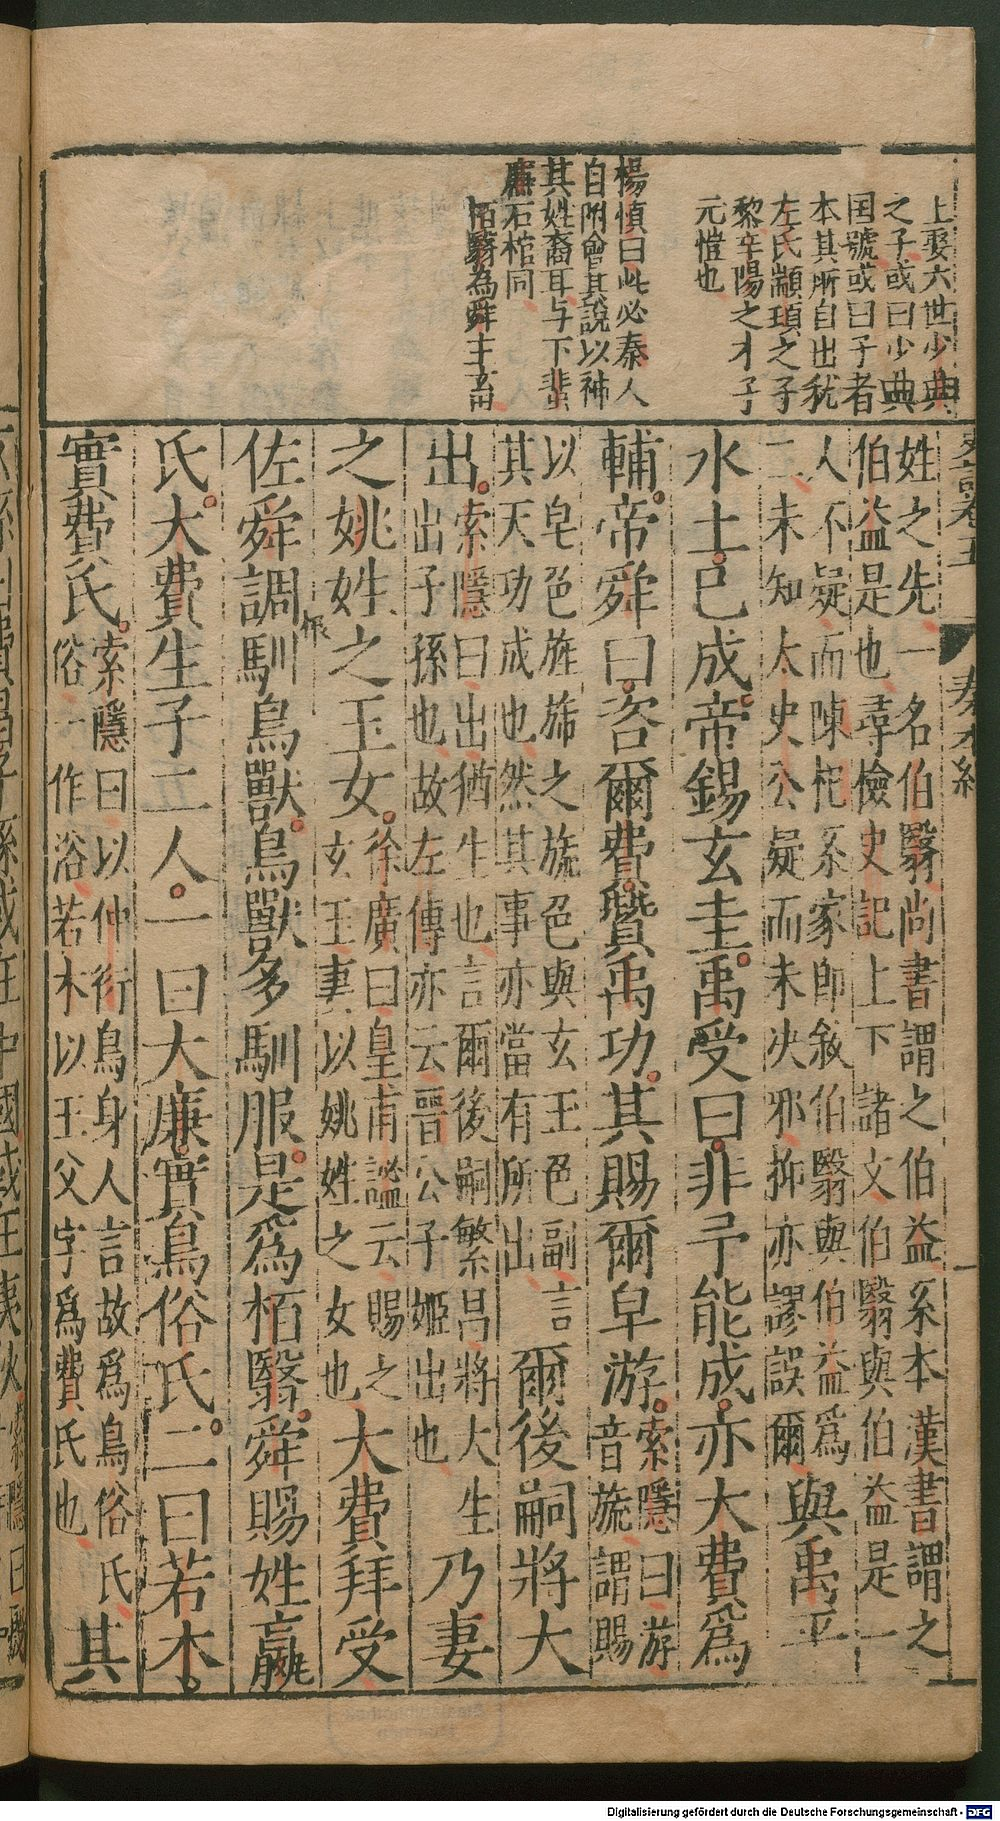 上娶六世少典
之子或曰少典
国號或曰子者
本其所自出犹
左氏顓頊之子
黎辛陽之才子
元愷也
楊慎曰此必秦人
自附會其說以神
其姓裔耳与下蜚
廉石棺同
栢翳為舜主畜
秦本紀
姓之先一名伯翳尚書謂之伯益系本漢書謂之
伯益是也尋檢史記上下諸文伯翳與伯益是一
人不疑而陳杞系家即敘伯翳與伯益為
二未知太史公疑而未决邪抑亦謬誤爾與禹平
水土已成帝錫玄圭禹受曰非予能成亦大費爲
輔帝舜曰咨爾費贊禹功其賜爾皁游索隱曰游
音旒謂賜
以皂色旌斾之旒色與玄玉色副言
其天功成也然其事亦當有所出爾後嗣將大
出索隱曰出猶生也言爾後嗣繁昌將大生
出子孫也故左傳亦云晉公子姬出也乃妻
之姚姓之玉女徐廣曰皇甫謐云賜之
玄玉妻以姚姓之女也大費拜受
佐舜調馴鳥獸鳥獸多馴服是爲栢翳舜賜姓嬴
氏大費生子二人一曰大廉實鳥俗氏二曰若木
實費氏索隱曰以仲衍鳥身人言故爲鳥俗氏
俗一作浴若木以王父字爲費氏也其
Digitalisierung gefördert durch die Deutsche Forschungsgemeinschaft - DFG